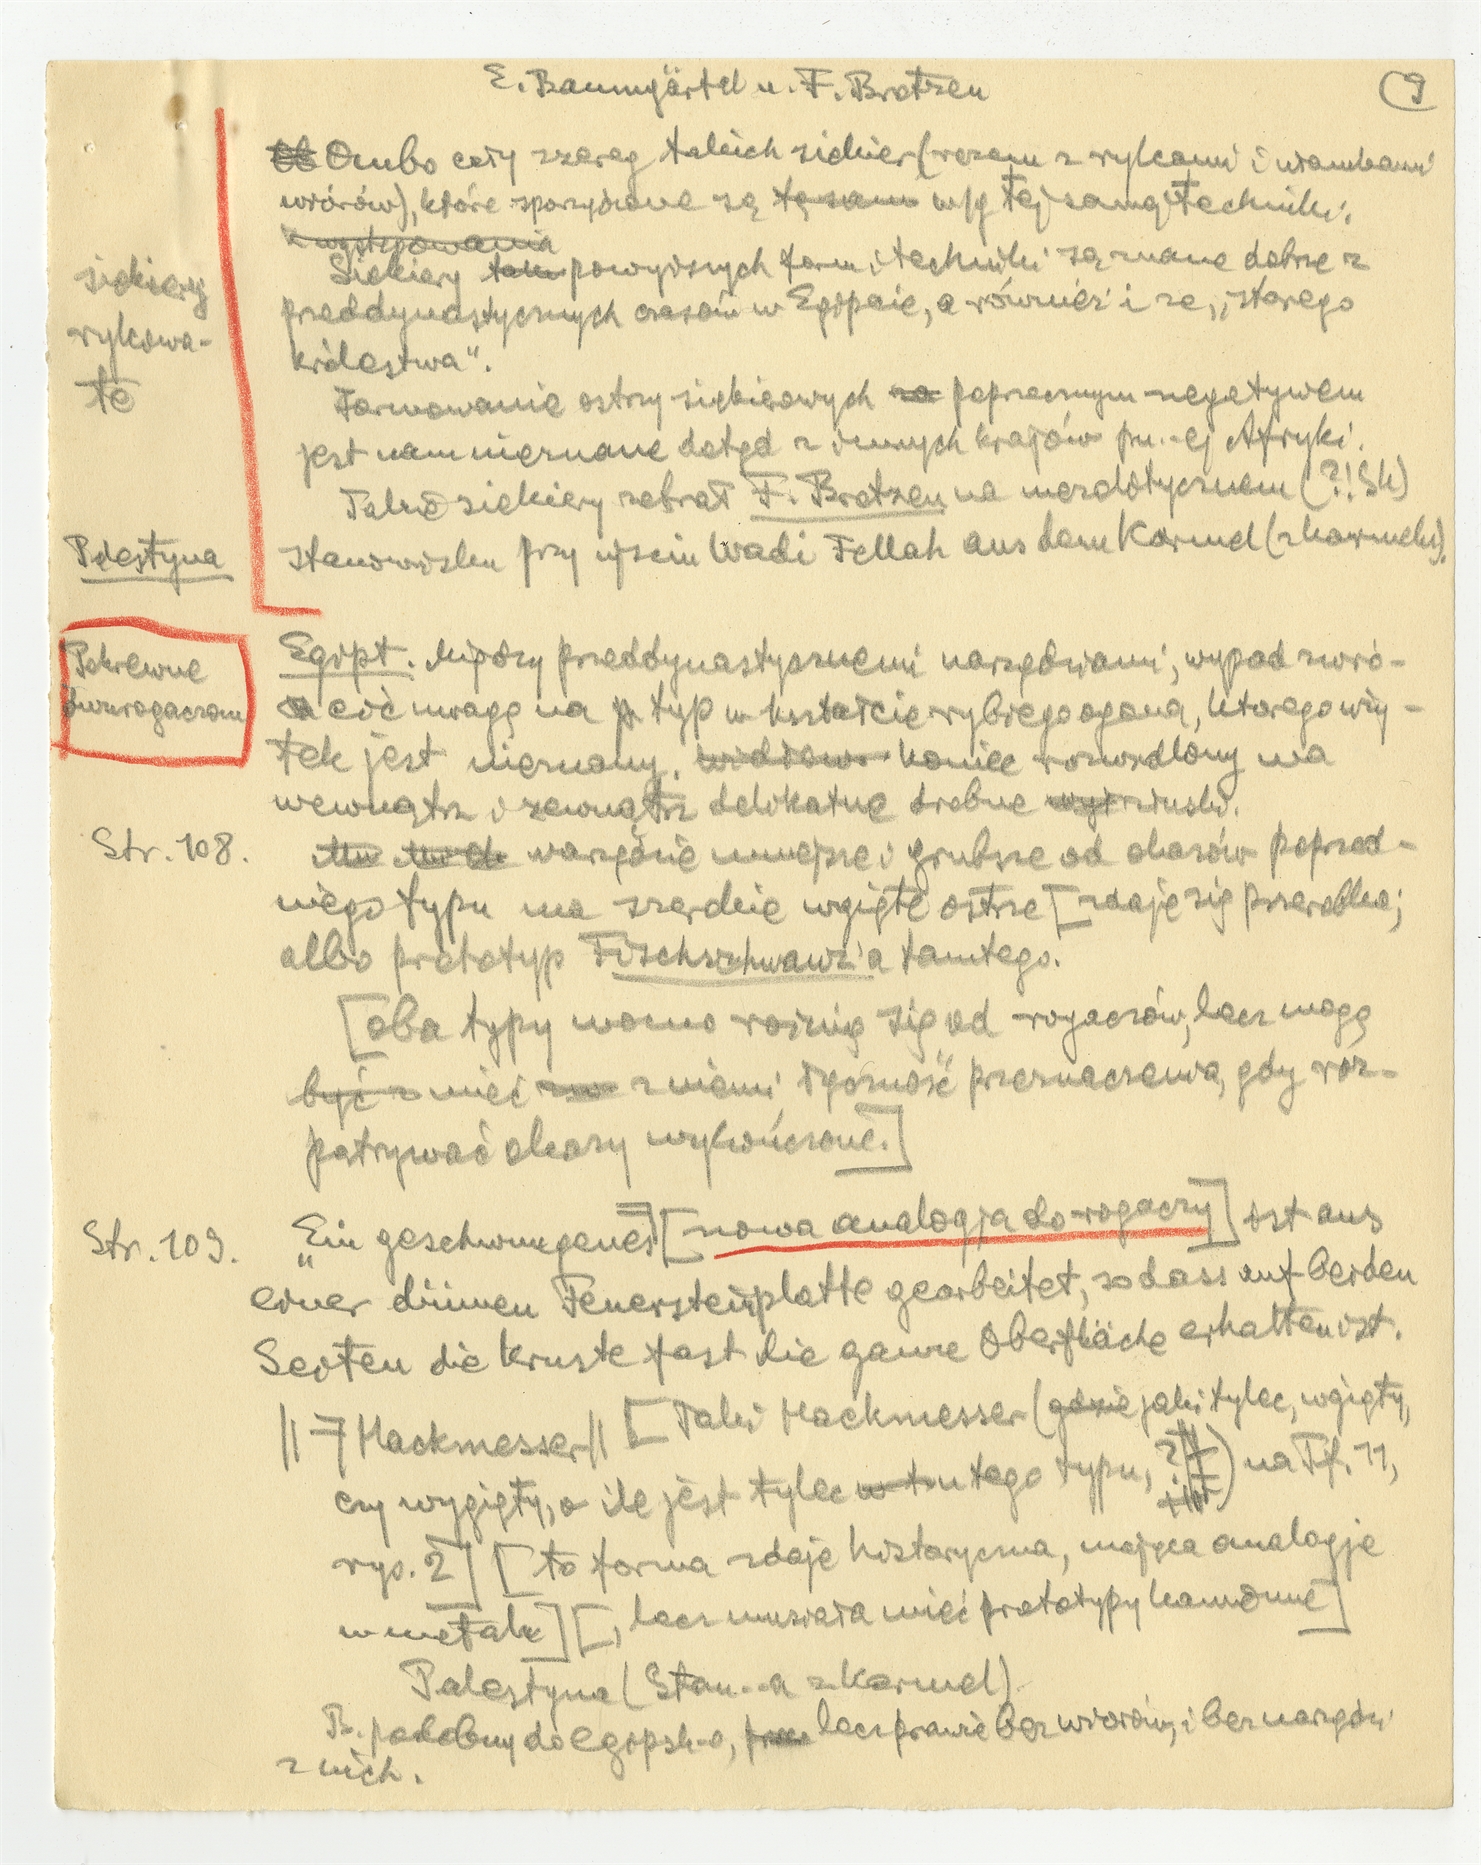 E. Baumgärtel u. F. Brotzen
9
Ombo cały szereg takich siekier (razem z rylcami i
wiórów), które sporządzone są tę samą w/g tej samej techniki.
z występowania
Siekiery powyższych form i techniki są znane dobrze z
siekiery
preddynastycznych czasów w Egipcie, a również i ze „starego
rylcowa-
królestwa”.
te
Formowanie ostrzy siekierowych za poprzecznym negatywem
jest nam nieznane dotąd z innych krajów pn.-ej Afryki.
Takie siekiery zebrał F. Brotzen na mezolitycznem (?! SK)
Palestyna
stanowisku przy ujściu Wadi Fellah aus dem Karmel (z Karmelu).
Pokrewne
dwurogaczom
Egipt. Między preddynastycznemi narzędziami, wypad zwró-
cić uwagę na typ w kształcie rybiego ogona, którego uży-
tek jest nieznany. koniec rozwidlony ma
wewnątrz i zewnątrz delikatne drobne ząbki.
Str. 108.
narzędzie mniejsze i grubsze od okazów poprzed-
niego typu ma szerokie wgięte ostrze [zdaje się przeróbka;
albo prototyp Fischschwanz'a tamtego.
[oba typy mocno różnią się od rogaczów, lecz mogą
być z mieć z niemi łączność przeznaczenia, gdy roz-
patrywać okazy wykończone.]
Str. 109.
„Ein geschwungenes] [nowa analogja do rogaczy] ist aus
einer dünnen Feuersteinplatte gearbeitet, so dass auf beiden
Seiten die Kruste fast die ganze Oberfläche erhalten ist.
|| Hackmesser || [Taki Hackmesser (gdzie jaki tylec, wgięty,
czy wygięty, o ile jest tylec u tego typu, ?) na Tf. 11,
rys. 2] [to forma zdaje historyczna, mająca analogje
w metalu] [, lecz musiała mieć prototypy kamienne]
Palestyna (Stan.-a z Karmel)
B. podobny do egipsk-o, lecz prawie bez wiórów, i bez narzędzi
z nich.